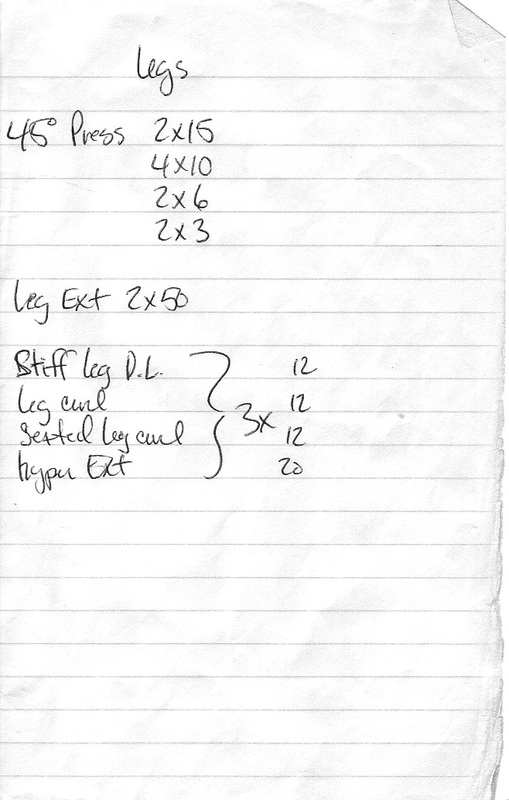 legs
45° Press 2x15
4x10
2x6
2x3
Leg Ext 2x50
Stiff leg D.L. 12
Leg curl 12
3x
Seated Leg curl 12
hyper Ext 20